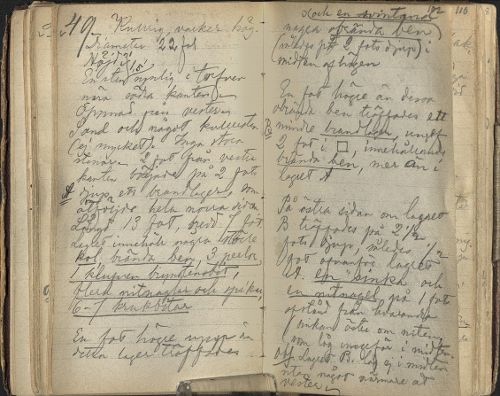 49. Kullrig, vacker hög.
Diameter 22 fot
Höjd
En sten synlig i torfven
nära södra kanten.
Öppnad från vester
Sand och något kullersten
(ej mycket). Inga stora
stenar. 2 fot från vestra
kanten började på 2 fots
djup ett brandlager, som
åtföljde hela norra sidan
Längd 13 fot, bredd 7 fot
lagret innehöll några större
kol, brända ben, 3 perlor
1 klufven
flera nitnaglar och spikar,
6-7 krukbitar
En fot högre upp än
detta lager träffades
också en
några obrända ben
(nedre på 2 fots djup) i
midten af högen
En fot högre än dessa
obrända ben träffades ett
mindre brandlager, ungef.
2 fot i □, innehållande
brända ben, mer än i
lagret A
På östra sidan om lagret
B träffades på 2 1/2
fots djup, således 1/2
fot ofvanför lagret
A. en och
en nitnagel på 1 fots
afstånd från hvarandra
öster om
som låg ungefär i midten.
Obs. Lagret B. låg ej i midten
utan något närmare åt
vester